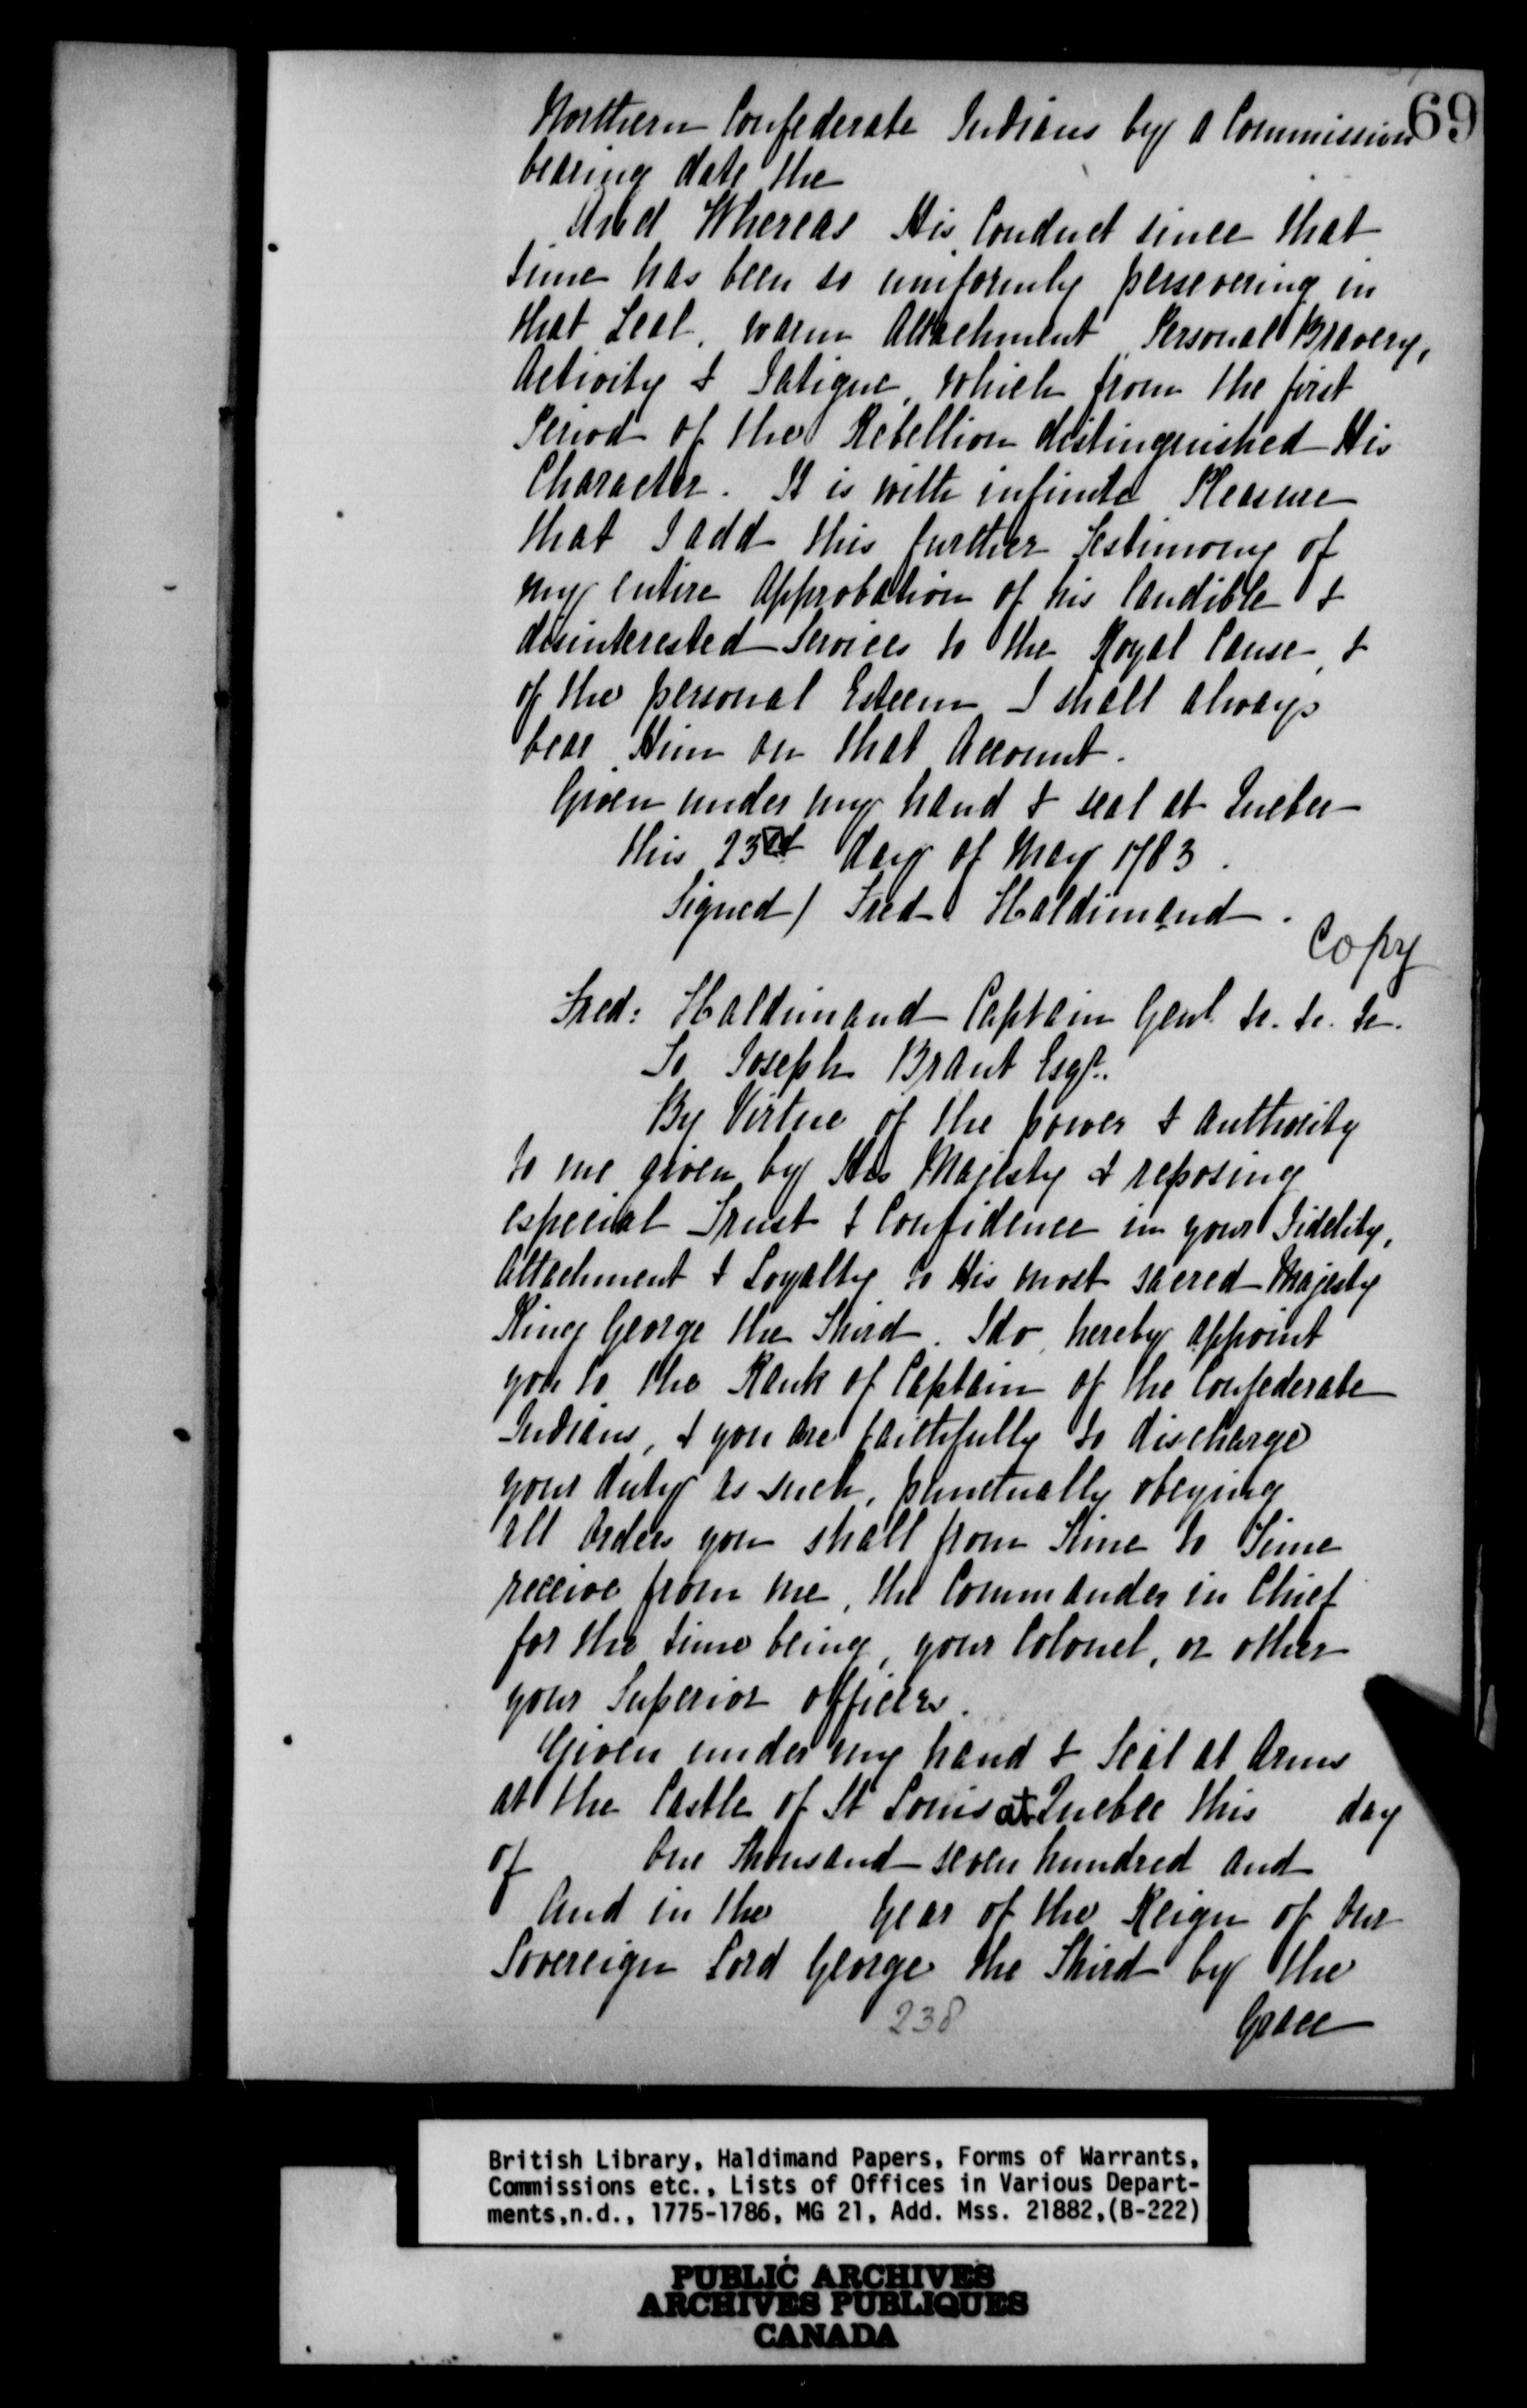 69
Northern Confederate Indians by a Commission
bearing date the
And Whereas His Conduct since that
time has been so uniformly persevering in
that Zeal, warm Attachment, Personal Bravery,
Activity & Fatigue, which from the first
Period of the Rebellion distinguished His
Character. It is with infinite Pleasure
that I add this further Testimony of
my entire Approbation of his laudible &
disinterested Services to the Royal Cause, &
of the personal Esteem I shall always
bear Him on that Account.
Given under my hand & seal at Quebec
this 23rd day of May 1783.
Signed / Fred Haldimand.
Copy
Fred: Haldimand Captain Genl. &c. &c. &c.
To Joseph Brant Esqr.
By Virtue of the power & authority
to me given by His Majesty & reposing
especial Trust & Confidence in your Fidelity,
Attachment & Loyalty to His most sacred Majesty
King George the Third. I do hereby appoint
you to the Rank of Captain of the Confederate
Indians, & you are faithfully to discharge
your duty as such, punctually obeying
all Orders you shall from Time to Time
receive from me, the Commander in Chief
for the time being, your Colonel, or other
your Superior Officers.
Given under my hand & Seal at Arms
at the Castle of St Louis at Quebec this day
of One Thousand seven hundred and
And in the Year of the Reign of Our
Sovereign Lord George the Third by the
238
Grace
British Library, Haldimand Papers, Forms of Warrants,
Commissions etc., Lists of Offices in Various Depart-
ments,n.d., 1775-1786, MG 21, Add. Mss. 21882,(B-222)
PUBLIC ARCHIVES
ARCHIVES PUBLIQUES
CANADA